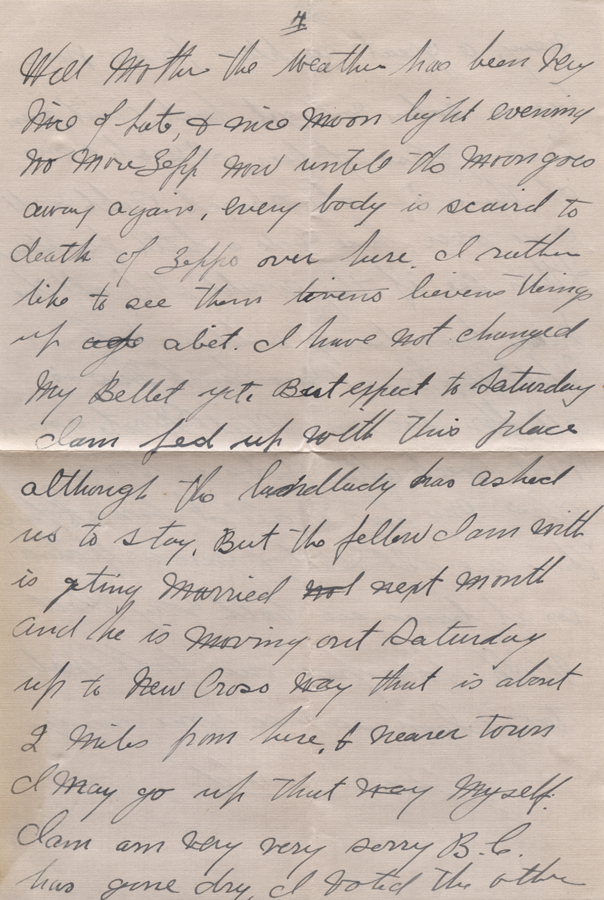 4
Well Mother the weather has been very
nice of late, & nice moon light evening
no more Zepp now untill the moon goes
away again, every body is scaird to
death of Zepps over here. I ruther
like to see them livens things
up abit. I have not changed
my Bellet yet. But expect to Saturday
I am fed up with this place
although the landlady has asked
us to stay. But the fellow I am with
is geting married next month
and he is moving out Saturday
up to New Cross way that is about
2 miles from here, & nearer town
I may go up that way myself.
I am am very very sorry B.C.
has gone dry, I voted the other